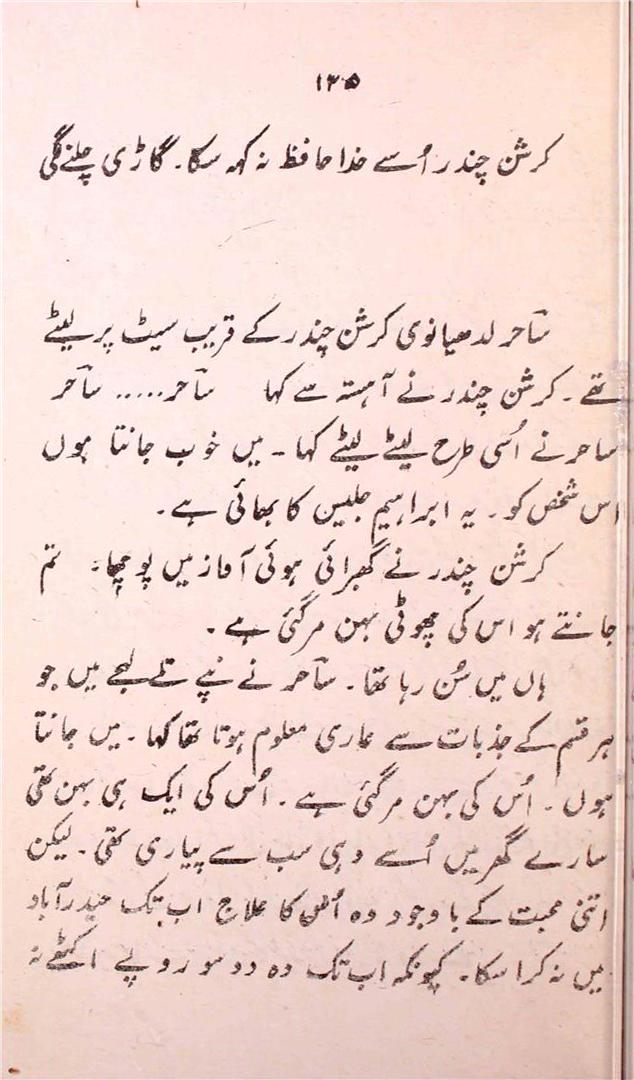 ۱۳۵
کرشن چندر اُسے خدا حافظ نہ کہہ سکا۔ گاڑی چلنے لگی
ساحر لدھیانوی کرشن چندر کے قریب سیٹ پر لیٹے
تھے۔ کرشن چندر نے آہستہ سے کہا ساحر..... ساحر
ساحر نے اُسی طرح لیٹے لیٹے کہا۔ میں خوب جانتا ہوں
اس شخص کو۔ یہ ابراہیم جلیس کا بھائی ہے۔
کرشن چندر نے گھبرائی ہوئی آواز میں پوچھا۔ تم
جانتے ہو اس کی چھوٹی بہن مرگئی ہے۔
ہاں میں سُن رہا تھا۔ ساحر نے نپے تلے لہجے میں جو
ہر قسم کے جذبات سے عاری معلوم ہوتا تھا کہا۔ میں جانتا
ہوں۔ اُس کی بہن مرگئی ہے۔ اُس کی ایک ہی بہن تھی
سارے گھر میں اُسے وہی سب سے پیاری تھی۔ لیکن
اتنی محبت کے باوجود وہ اُس کا علاج اب تک حیدرآباد
میں نہ کرا سکا۔ کیونکہ اب تک وہ دو سو روپے اکٹھے نہ